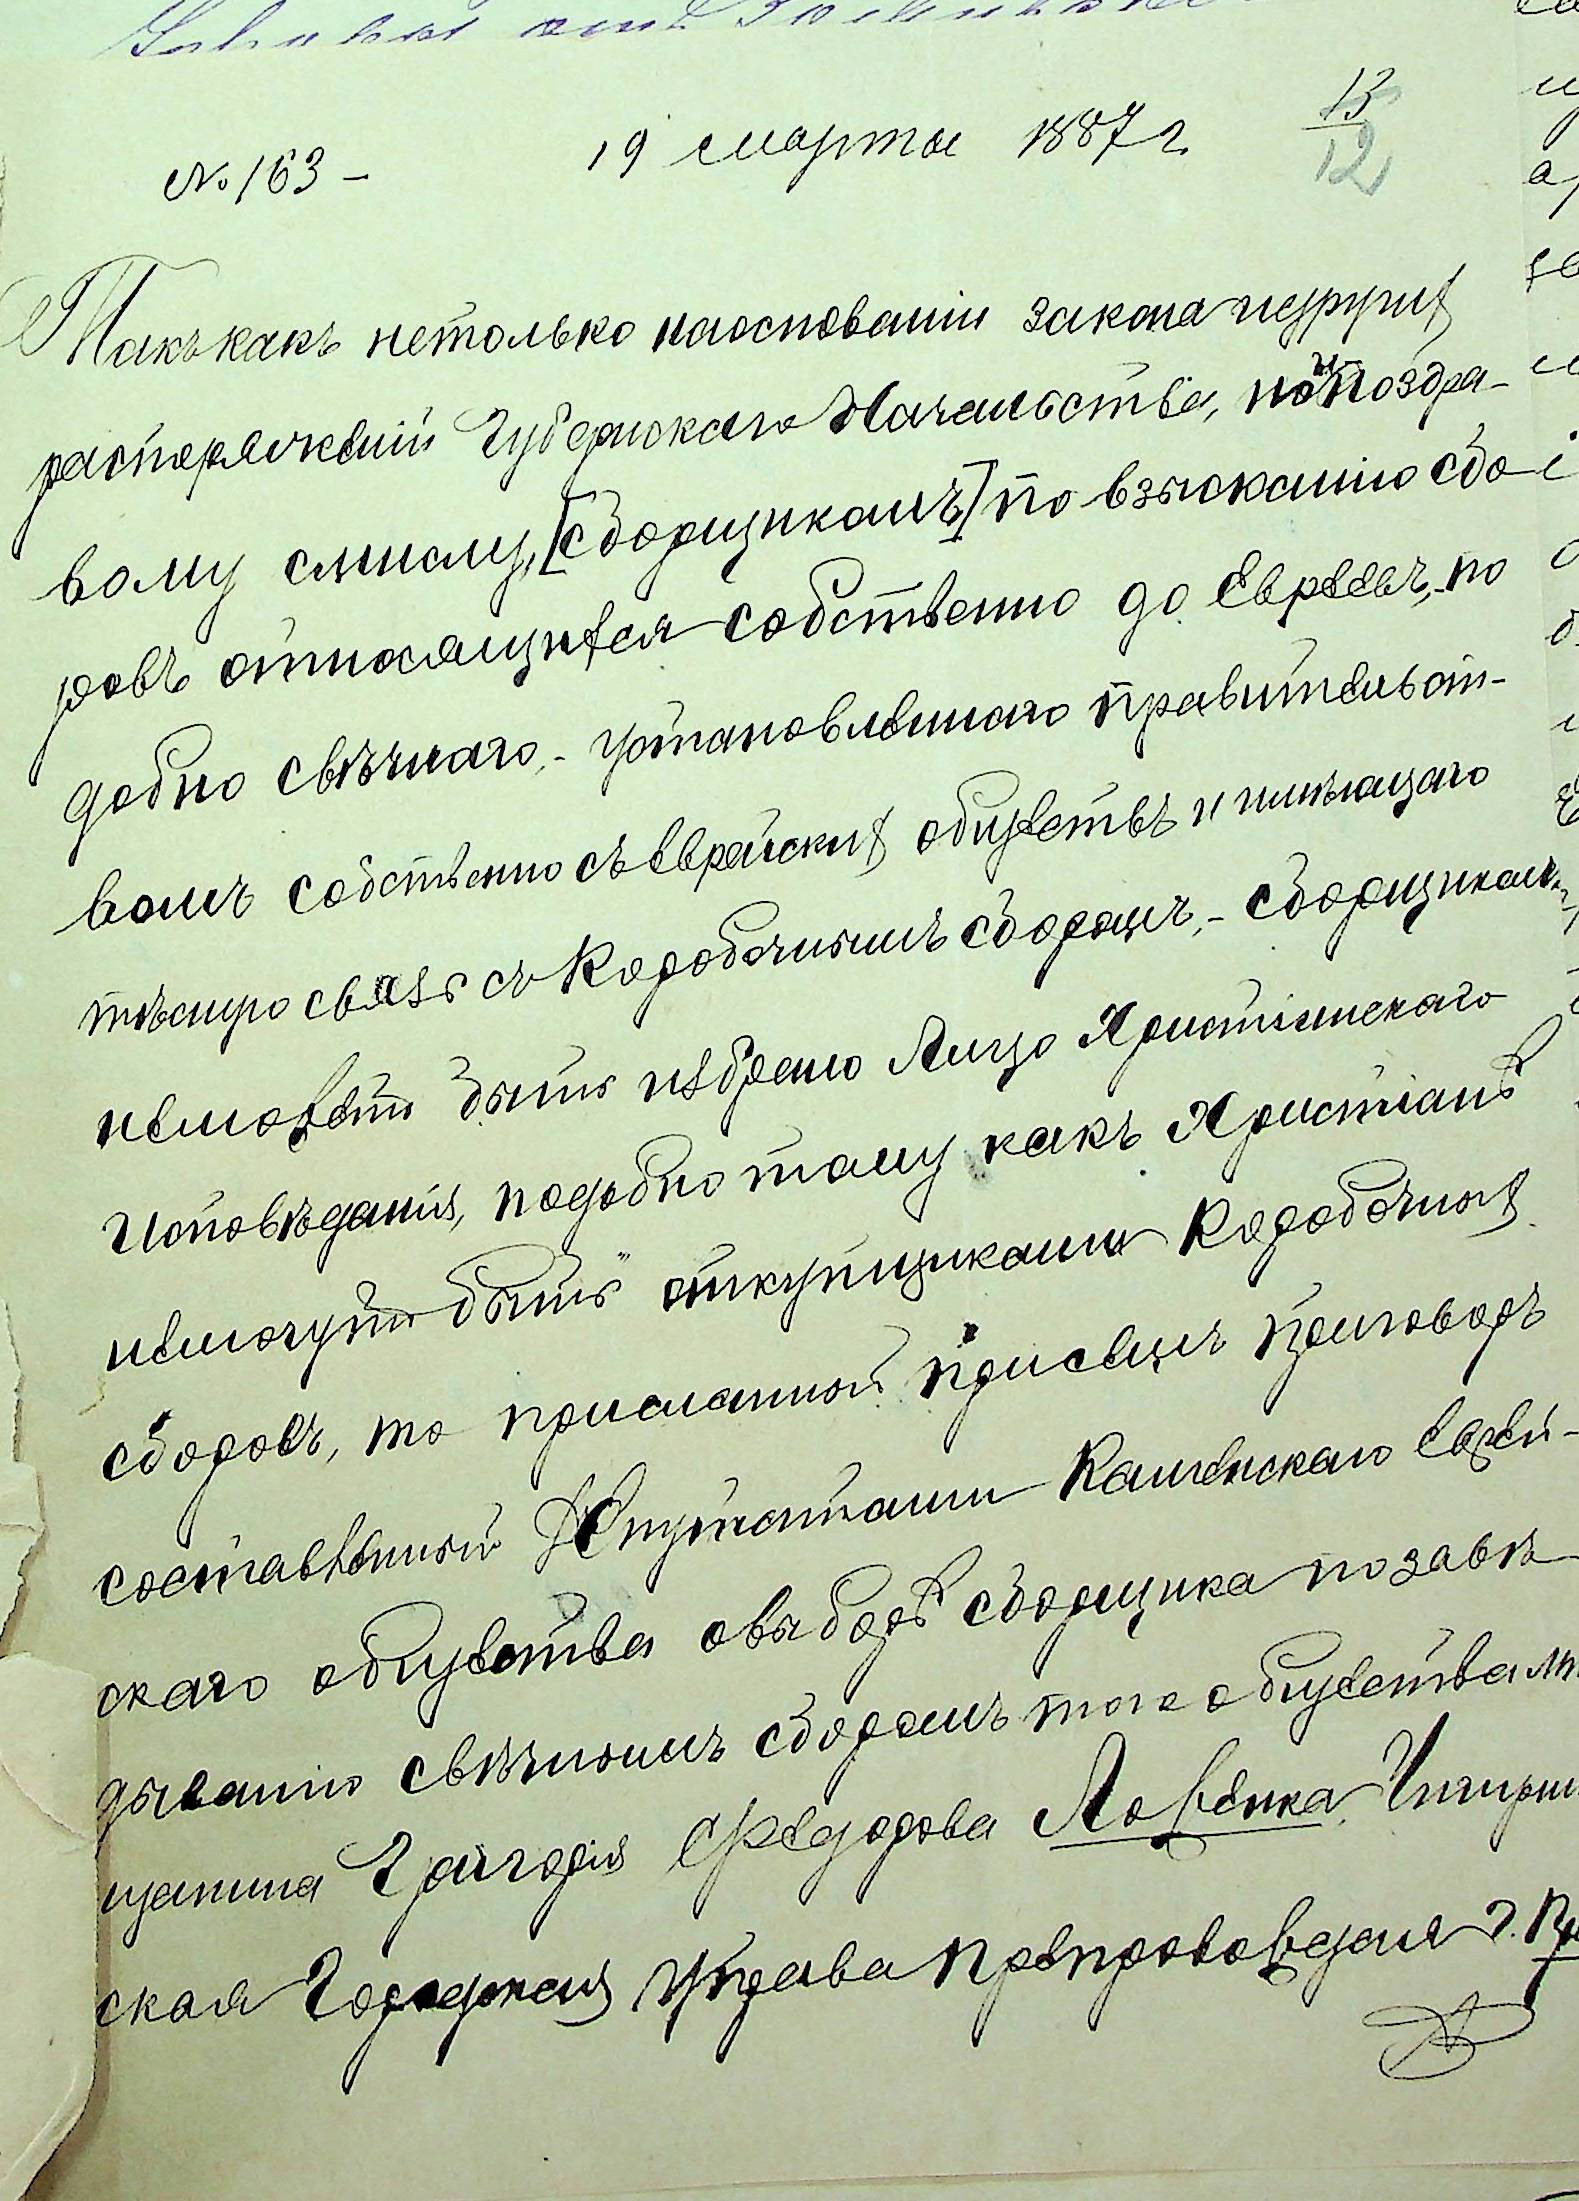 № 163 –
19 марта 1887 г.
13
12
Такъ какъ нетолько наосновании закона идругихъ
распоряжений Губернскаго Начальства, но и поздра-
вому смыслу, [сборщикомъ] по взысканію сбо-
ровъ относящихся собственно до Евреевъ,- по
добно свѣчнаго,- установленнаго правительст-
вомъ собственно съ Еврейскихъ обществъ и имѣющаго
тѣсную связь съ Коробочнымъ сборомъ,- сборщикомъ
неможетъ быть избрано Лицо Христіянскаго
исповѣданія, подобно тому какъ Христіане
немогутъ быть откупщиками Коробочныхъ
сборовъ, то присланной присемъ приговоръ
составленный Депутатами Каменскаго Еврей-
скаго общества овыборѣ сборщика позавѣ
дыванію свѣчнымъ сборомъ того общества мѣ
щанина Григорія Федорова Ловенка, Чигирин
ская Городская Управа препровождая Г.